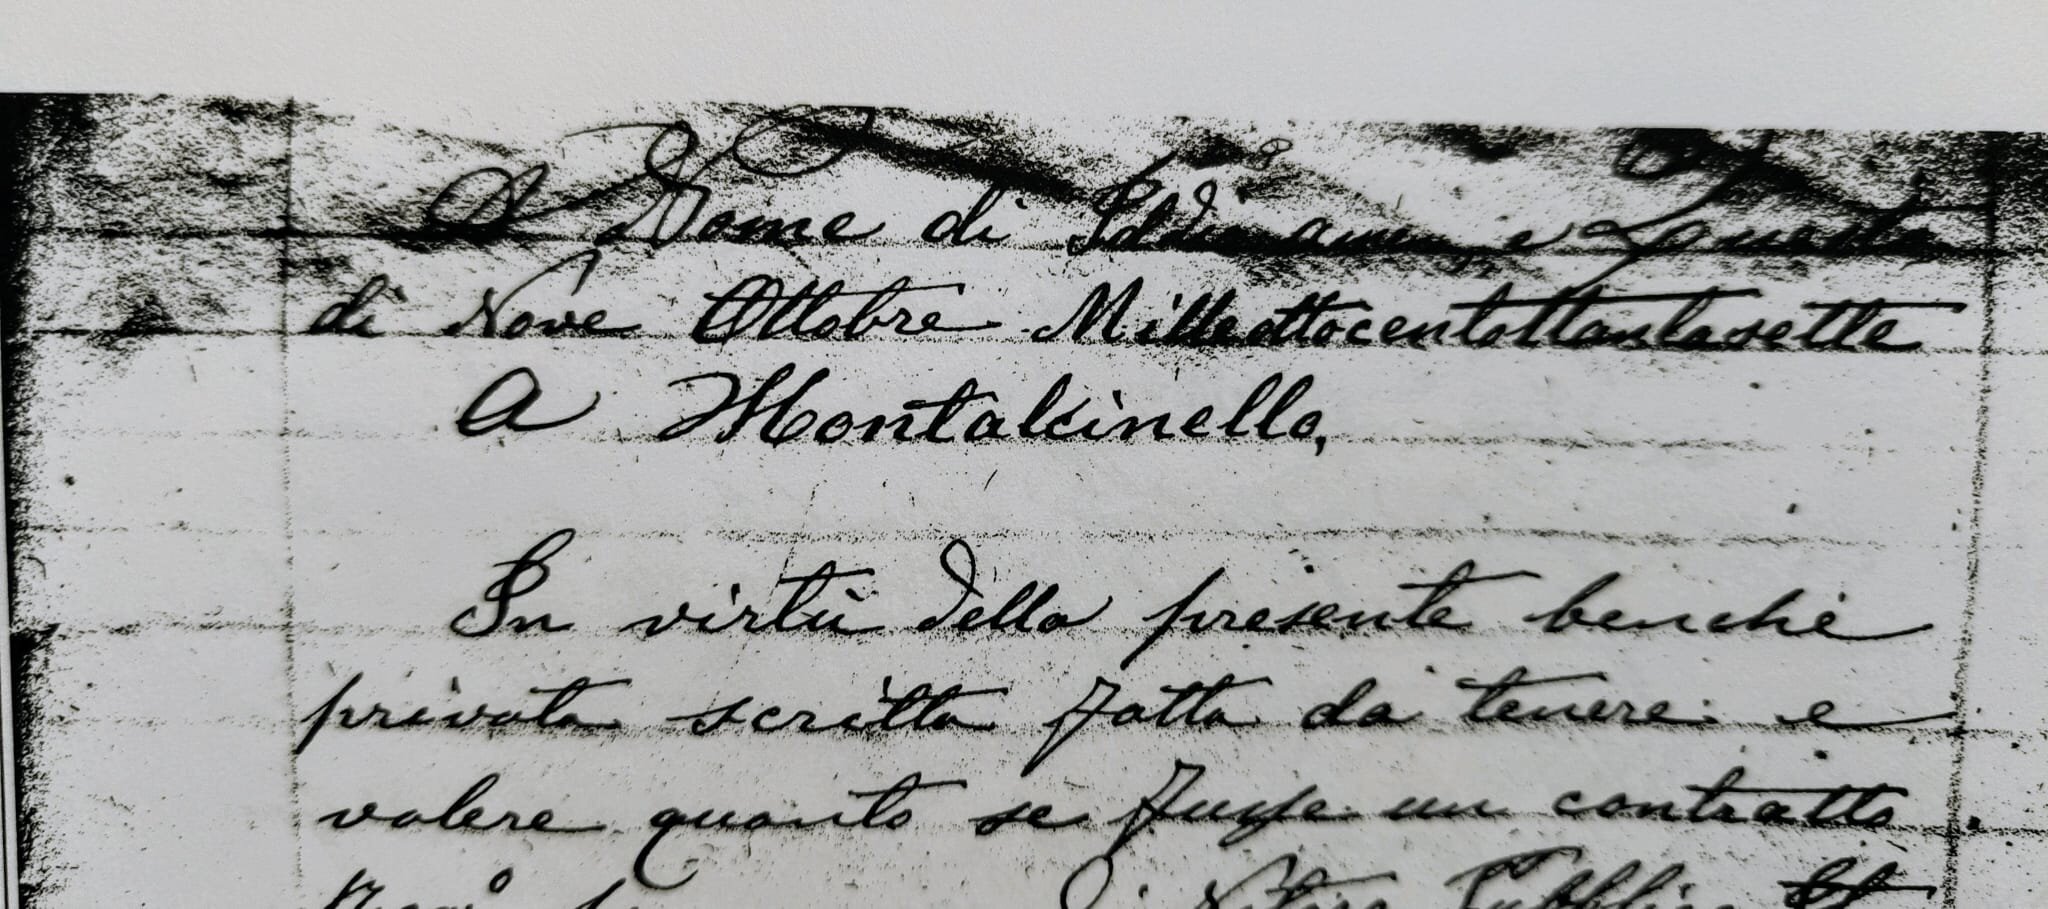 A Nome di Iddio amen e Questo
di Nove Ottobre Milleottocentottantasette
A Montalcinello,
In virtù della presente benchè
privata scritta fatta da tenere e
valere quanto se fusse un contratto
di Pubblico